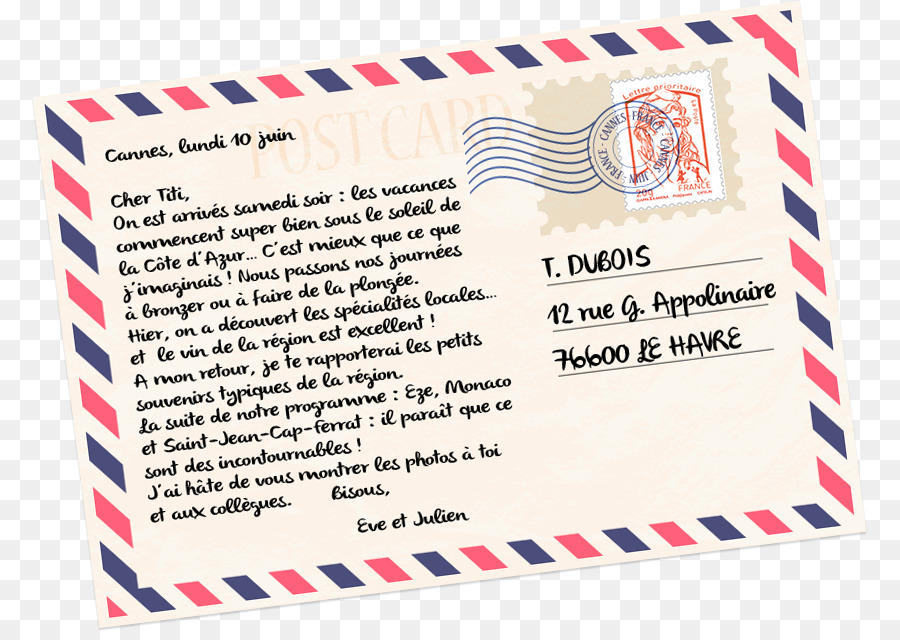 POSTCARD
Cannes, lundi 10 juin
Cher Titi,
On est arrivés samedi soir : les vacances
commencent super bien sous le soleil de
la Côte d'Azur... C'est mieux que ce que
j'imaginais ! Nous passons nos journées
à bronzer ou à faire de la plongée.
Hier, on a découvert les spécialités locales...
et le vin de la région est excellent !
A mon retour, je te rapporterai les petits
souvenirs typiques de la région.
La suite de notre programme : Eze, Monaco
et Saint-Jean-Cap-ferrat : il paraît que ce
sont des incontournables !
J'ai hâte de vous montrer les photos à toi
et aux collègues.
Bisous,
Eve et Julien
Lettre prioritaire
La Poste
FRANCE - CANNES - FRANCE - CANNES
JUIN
20g
FRANCE
T. DUBOIS
12 rue G. Appolinaire
76600 LE HAVRE